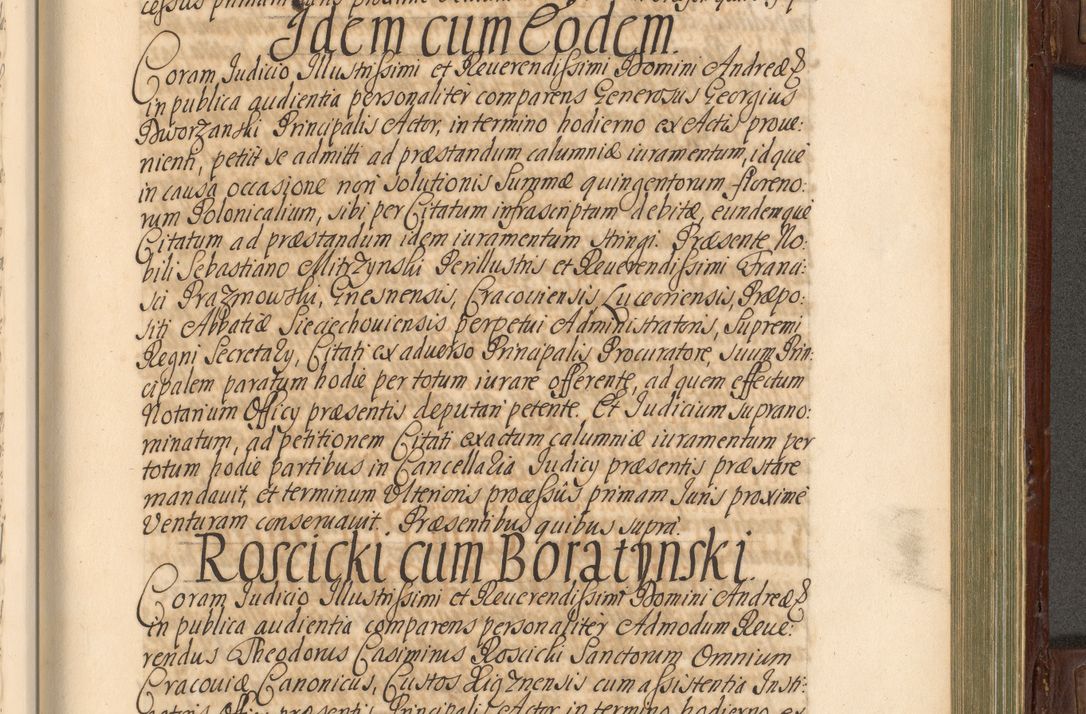 Idem cum Eodem.
Coram Iudicio Illustrissimi et Reuerendissimi Domini Andreæ &
in publica audientia personaliter comparens Generosus Georgius
Dworzanski Principalis Actor, in termino hodierno ex Actis proue:
nienti, petijt se admitti ad præstandum calumniæ iuramentum, idque
in causa occasione non solutionis Summæ quingentorum floreno:
rum Polonicalium, sibi per Citatum infrascriptum debitæ, eundemque
Citatum ad præstandum idem iuramentum stringi. Præsente No:
bili Sebastiano Mitrzynski Perillustris et Reuerendissimi Franci:
sci Prazmowski, Gnesnensis, Cracouiensis Luceoriensis, Præpo:
siti Abbatiæ Sieciechouiensis perpetui Administratoris, Supremi
Regni Secretarij, Citati ex aduerso Principalis Procuratore, suum Prin:
cipalem paratum hodie per totum iurare offerente, ad quem effectum
Notarium Officij præsentis deputari petente. Et Iudicium suprano:
minatum, ad petitionem Citati exactum calumniæ iuramentum per
totum hodie partibus in Cancellaria Iudicij præsentis præstare
mandauit, et terminum Vlterioris processûs primam Iuris proxime
Venturam conseruauit. Præsentibus quibus supra.
Roscicki cum Boratynski.
Coram Iudicio Illustrissimi et Reuerendissimi Domini Andreæ &
in publica audientia comparens personaliter Admodum Reue:
rendus Theodorus Casimirus Roscicki Sanctorum Omnium
Cracouiæ Canonicus, Custos Xiąznensis cum assistentia Insti:
gatoris Officij præsentis Principalis Actor in termino hodierno ex